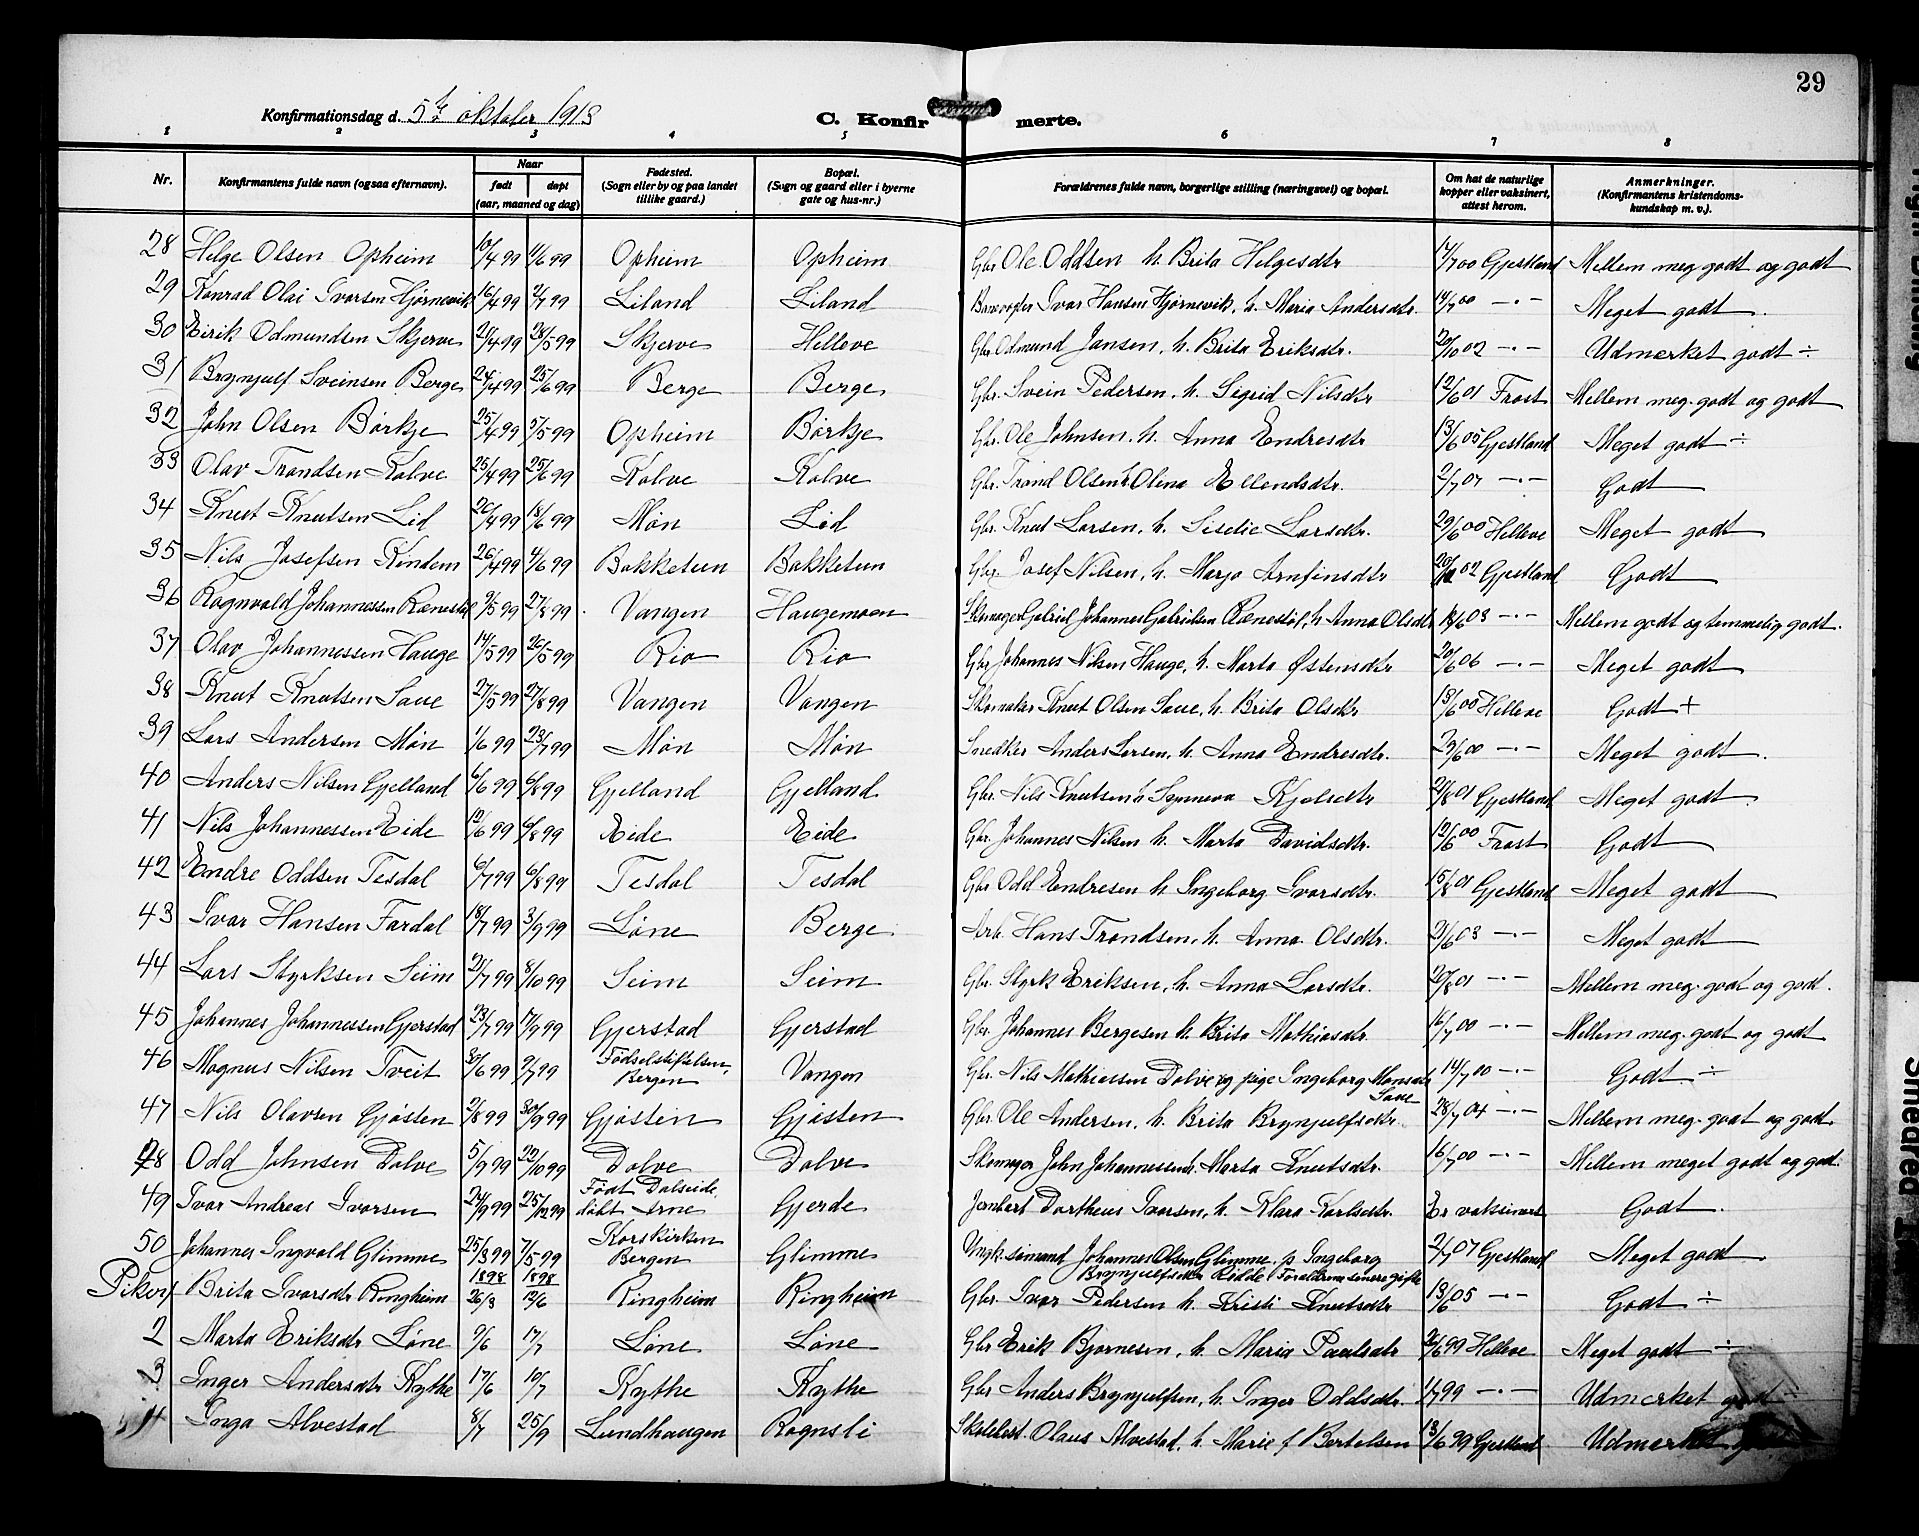 29
Konfirmationsdag d. 5te oktober 1913
C. Konfirmerte.
1 2 3 4 5 6 7 8
Nr. Konfirmantens fulde navn (ogsaa efternavn). Naar født døpt (aar, maaned og dag) Fødested. (Sogn eller by og paa landet tillike gaard.) Bopæl. (Sogn og gaard eller i byerne gate og hus-nr.) Forældrenes fulde navn, borgerlige stilling (næringsvei) og bopæl. Om hat de naturlige kopper eller vaksinert, attest herom. Anmerkninger. (Konfirmantens kristendomskundskap m. v.).
28 Helge Olsen Opheim 10/4 99 11/6 99 Opheim Opheim Gbr. Ole Oddsen h. Brita Helgesdtr 17/7 00 Gjestland Mellem meg godt og godt
29 Konrad Olai Ivarsen Hjørnevik 16/4 99 2/7 99 Liland Liland Ivar Hansen Hjørnevik, h. Maria Andersdtr. 14/7 00 -"- Meget godt.
30 Eirik Odmundsen Skjerve 21/4 99 28/5 99 Skjerve Helleve Gbr. Odmund Jansen, h. Brita Eriksdtr. 20/10 02 -"- Udmerket godt ÷
31 Brynjulf Sveinsen Berge 24/4 99 25/6 99 Berge Berge Gbr. Svein Pedersen, h. Sigrid Nilsdtr 12/6 01 Frost Mellem meg. godt og godt
32 John Olsen Børkje 25/4 99 5/5 99 Opheim Børkje Gbr. Ole Johnsen, h. Anna Endresdtr 13/6 05 Gjestland Meget godt ÷
33 Olav Trondsen Kolve 25/4 99 25/6 99 Kolve Kolve Gbr. Trond Olsen h. Olena Ellendsdtr. 2/7 07 -"- Godt
34 Knut Knutsen Lid 26/4 99 18/6 99 Møn Lid Gbr. Knut Larsen, h. Siselie Larsdtr. 29/6 00 Helleve Meget godt
35 Nils Josefsen Kindem 26/4 99 4/6 99 Bakketun Bakketun Gbr. Josef Nilsen, h. Marjo Arnfinsdtr 02 Gjestland Godt
36 Rognvald Johannessen Rænestøl 9/5 99 27/8 99 Vangen Haugamoen Skomager Gabriel Johannes Gabrielsen Rænestøl, h. Anna Olsdtr 18/6 03 -"- Mellem godt og temmelig godt.
37 Olav Johannessen Hauge 14/5 99 26/5 99 Rio Rio Gbr Johannes Nilsen Hauge, h. Marta Østensdtr 20/6 06 -"- Meget godt
38 Knut Knutsen Saue 27/5 99 27/8 99 Vangen Vangen Skomaker Knut Olsen Saue, h. Brita Olsdtr 13/6 00 Helleve Godt +
39 Lars Andersen Møn 1/6 99 23/7 99 Møn Møn Snedker Anders Larsen, h. Anna Endresdtr. 29/6 00 -"- Meget godt.
40 Anders Nilsen Gjelland 6/6 99 6/8 99 Gjelland Gjelland Gbr. Nils Knutsen h. Synneva Kjelsdtr 21/8 01 Gjestland Meget godt
41 Nils Johannessen Eide 10/6 99 6/8 99 Eide Eide Gbr. Johannes Nilsen h. Marta Davidsdtr. 12/6 00 Frost Godt
42 Endre Oddsen Tesdal 6/7 99 6/8 99 Tesdal Tesdal Gbr Odd Endresen h Ingeborg Ivarsdtr. 15/8 01 Gjestland Meget godt
43 Ivar Hansen Fardal 18/7 99 3/9 99 Løne Berge Arb. Hans Trondsen, h. Anna Olsdtr. 21/6 03 -"- Meget godt
44 Lars Styrksen Seim 21/7 99 8/10 99 Seim Seim Gbr. Styrk Eriksen, h. Anna Larsdtr. 20/8 01 -"- Mellem meg. godt og godt.
45 Johannes Johannessen Gjerstad 23/7 99 17/9 99 Gjerstad Gjerstad Gbr. Johannes Bergesen h. Brita Mathiasdtr. 16/7 00 -"- Mellem meg. godt og godt
46 Magnus Nilsen Tveit 30/6 99 9/7 99 Fødselstiftelsen, Bergen Vangen Gbr. Nils Mathiassen Dolve og pige Ingeborg Monsdtr Saue 14/7 00 -"- Godt ÷
47 Nils Olavsen Gjøsten 2/8 99 30/9 99 Gjøsten Gjøsten Gbr. Ole Andersen, h. Brita Brynjulfsdtr. 28/7 04 -"- Mellem meg. godt og godt
48 Odd Johnsen Dolve 5/9 99 22/10 99 Dolve Dolve Skomager John Johannessen h. Marta Knutsdtr. 16/7 00 -"- Mellem meget godt og god.
49 Ivar Andreas Ivarsen 24/9 99 25/12 99 Født Dalseide, døbt Arne Gjerde Dortheus Ivarsen, h. Klara Karlsdtr. Er vaksinert Godt.
50 Johannes Ingvald Glimme 25/3 99 7/5 99 Korskirken Bergen Glimme Ungk. sømand Johannes Olsen Glimme p. Ingeborg Brynjulfsdtr Ridde Forældrene senere gifte 2/7 07 Gjestland Meget godt
Piker Brita Ivarsdtr Ringheim 1898 26/3 1898 12/6 Ringheim Ringheim Gbr. Ivar Pedersen h. Kristi Knutsdtr 13/6 05 -"- Godt ÷
2 Marta Eriksdtr Løne 9/6 17/7 Løne Løne Gbr Erik Bjørnesen, h. Maria Paulsdtr 26/6 99 Helleve Meget godt ÷
3 Inger Andersdtr Rythe 17/6 10/7 Rythe Rythe Gbr Anders Brynjulfsen, h. Inger Oddsdtr. 1/7 99 -"- Udmerket godt ÷
4 Inga Alvestad 8/7 25/9 Lundhaugen Rognsli Skolebest. Olaus Alvestad, h. Marie f Bertelsen 13/6 99 Gjestland Udmerket